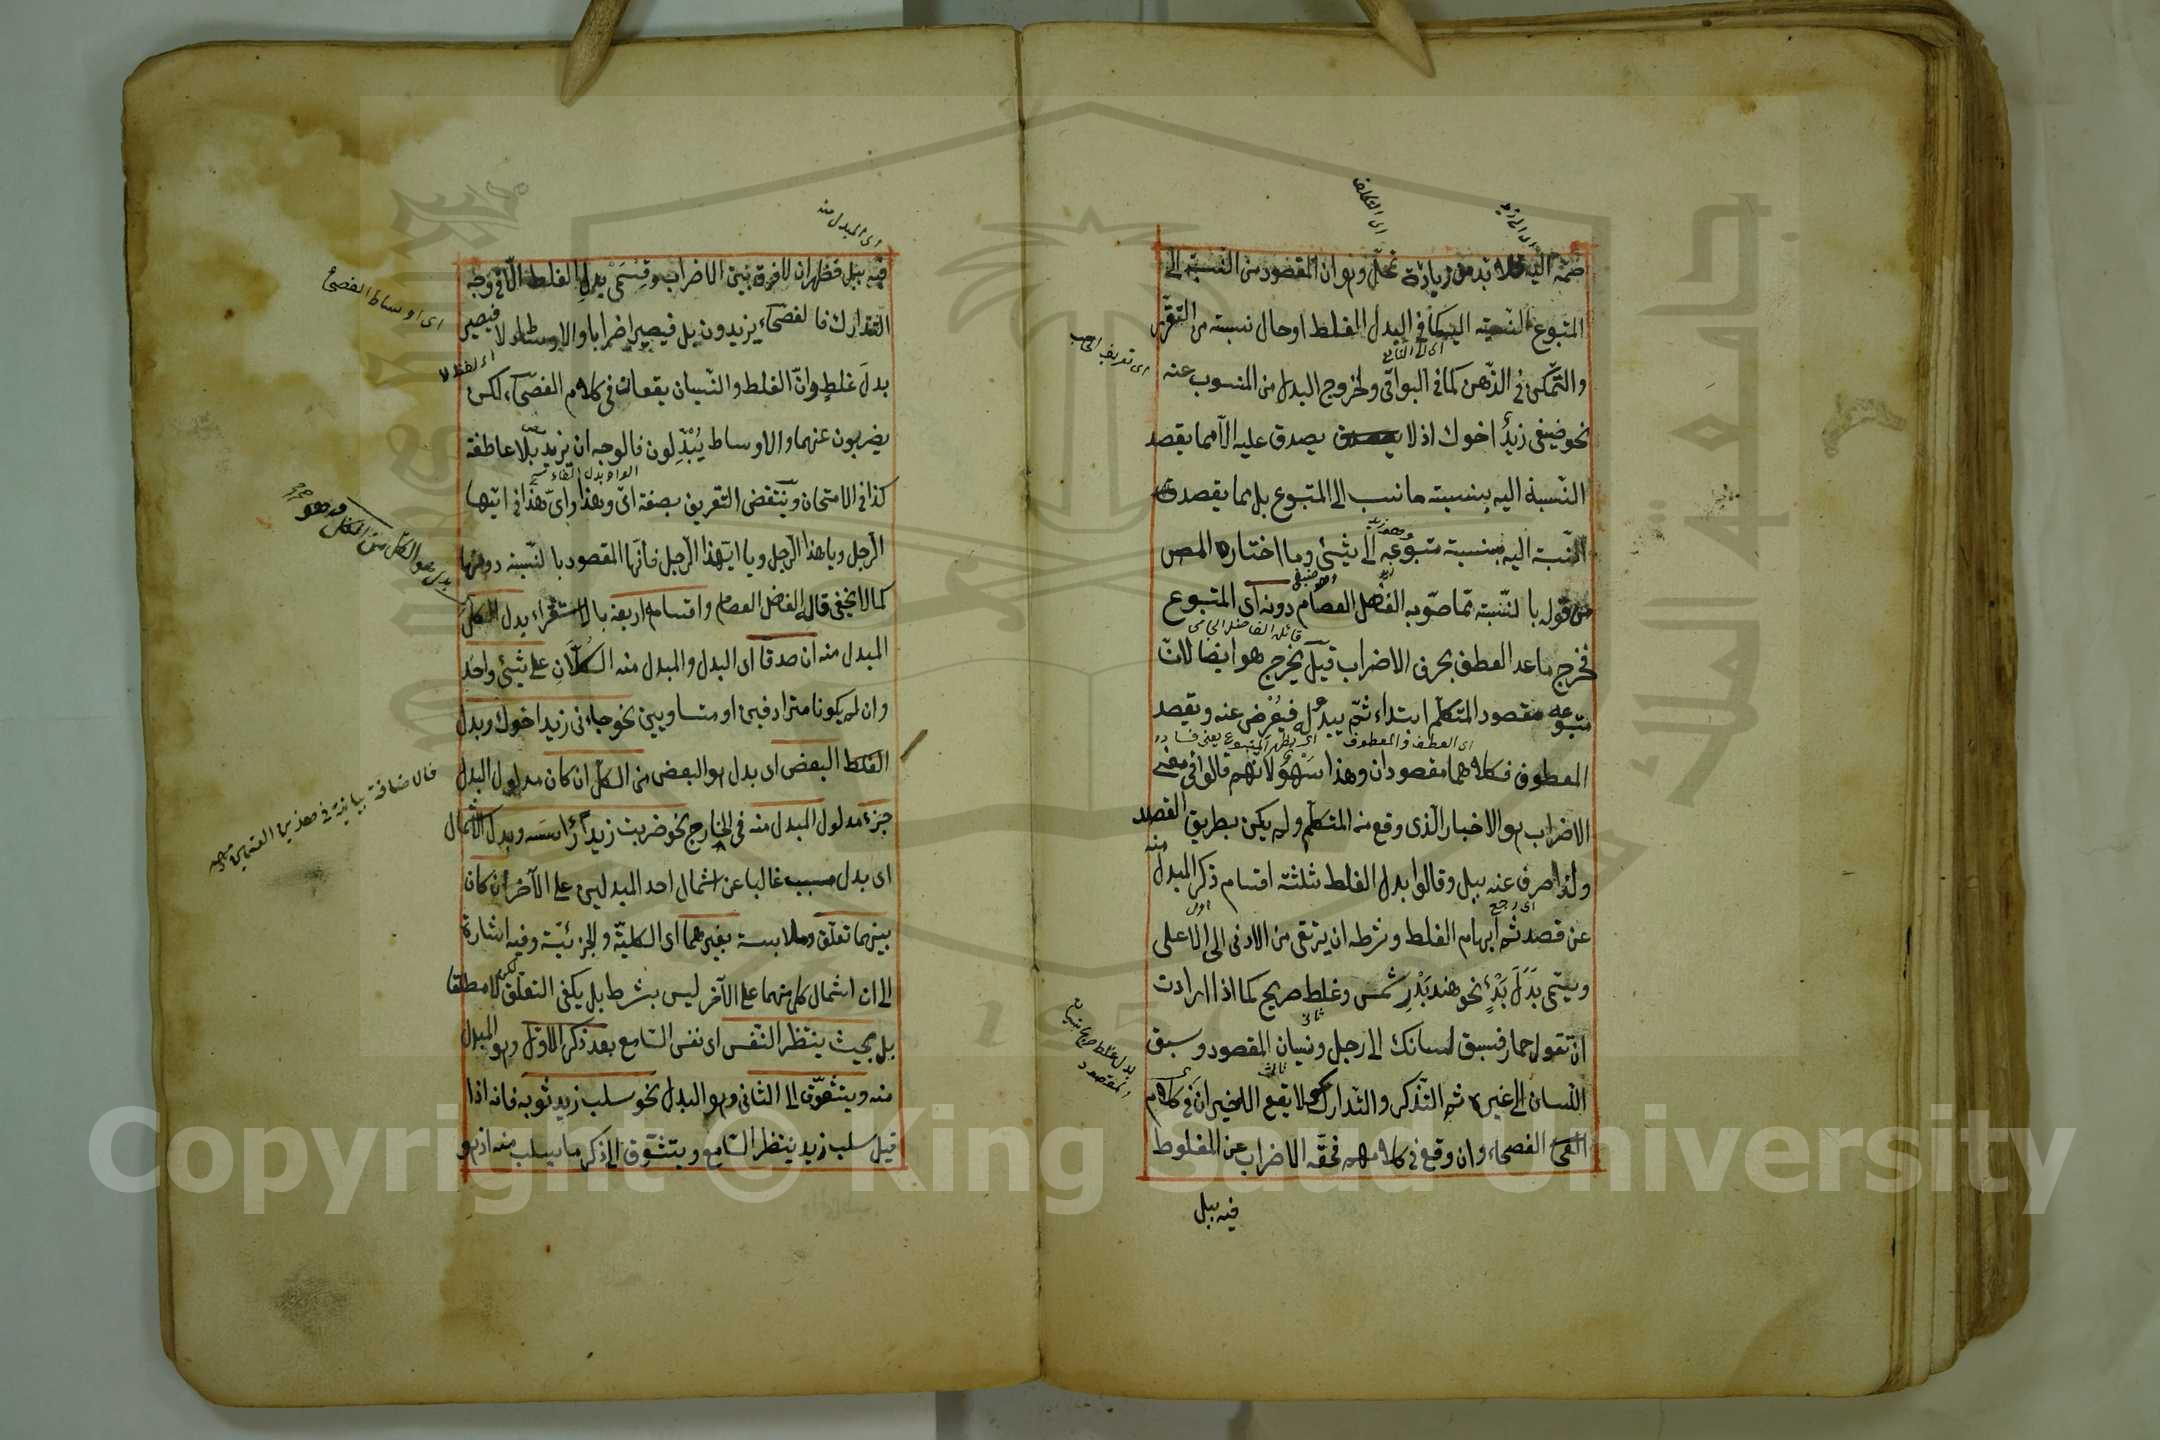 ضمّه اليه فلا بد من زيادة تمحّل وهو ان المقصود من النسبة الى
المتبوع النسبة اليه كما فى البدل الغلط او حال نسبته من التقرّر
والتّمكن فى الذّهن كما فى البواقى ولخروج البدل من المنسوب عنه
نحو ضيفى زيد اخوك اذ لا يصدق عليه الا مما يقصد
النّسبة اليه بنسبته ما نسب الى المتبوع بل مما يقصد
النّسبة اليه بنسبته متبوعه الى شئ وما اختاره المص
من قوله بالنّسبة مما صوّبه الفاضل العصام دونه اى المتبوع
فخرج ما عدا العطف بحرف الاضراب قيل يخرج هو ايضا لانّ
متبوعه مقصود المتكلّم ابتداء ثمّ يبدو له فيُعْرض عنه ويقصد
المعطوف فكلاهما مقصودان وهذا سَهْوٌ لانّهم قالوا فى معنى
الاضراب هو الاخبار الّذى وقع منه المتكلّم ولم يكن بطريق القصد
ولذا صرف عنه ببل وقالوا بدل الغلط ثلثة اقسام ذكر المبدل منه
عن قصد ثم ايهام الغلط وشرطه ان يرتقى من الادنى الى الاعلى
ويسمّى بَدَلَ بَدْءٍ نحو هند بَدْر شمس وغلط صريح كما اذا اردت
ان تقول حمار فسبق لسانك الى رجل ونسيان المقصود وسبق
اللّسان الى غيره ثم التّذكر والتّدارك ولا يقع الاخيران فى كلام
الفصحاء وان وقع فى كلامهم فحقّه الاضراب عن المغلوط
فيه ببل
اى التكلف
اى الى الثانى
وهو زيد
وهو ضيفى
قائله الفاضل الجامى
اى العطف والمعطوف
اى رجع
اول
ثانى
ثالث
بدل غلط صريح
المقصود
فيه ببل فظهر ان لا فرق بين الاضراب وقِسْمَىْ بدل الغلط الّا فى وجه
التّدارك فالفصحاء يزيدون بل فيصير اضرابا والاوساط لا فيصير
بدلَ غلطٍ وانّ الغلط والنّسيان يقعان فى كلام الفصحاء لكن
يضربون عنهما والاوساط يُبْدِلون فالوجه ان يزيد بلا عاطفة
كذا فى الامتحان وينتقض التعريف بصفة اىّ وهذا واىّ هذا فى ايّها
الرجل ويا هذا الرجل ويا ايّهذا الرجل فانّها المقصود بالنّسبة دونها
كما لا يخفى قال الفاضل العصام واقسامه اربعة بالاستقراء بدل الكل
المبدل منه ان صدقا اى البدل والمبدل منه الكلّان على شئ واحد
وان لم يكونا مترادفين او متساويين نحو جاءنى زيد اخوك وبدل
البعض اى بدل هو البعض من الكل ان كان مدلول البدل
جزء مدلول المبدل منه فى الخارج نحو ضربت زيدا رأسَه وبدل الاشتمال
اى بدل مسبب غالبا عن اشتمال احد المبدلين على الآخر ان كان
بينهما تعلّق وملابسة بغيرهما اى الكليّة والجزئيّة وفيه اشارة
الى ان اشتمال كل منهما على الآخر ليس بشرط بل يكفى التعلّق لكن لا مطلقا
بل بحيث ينتظر النّفس اى نفس السّامع بعد ذكر الاوّل وهو المبدل
منه ويتشوّق الى الثانى وهو البدل نحو سلب زيد ثوبه فانه اذا
قيل سلب زيد ينتظر السّامع ويتشوّق الى ذكر ما يسلب منه اذ هو
اى المبدل منه
اى اوساط الفصحاء
الواو بدل الفاء
بدل هو الكل من الكل
فالاضافة بيانية فى هذين القسمين
Copyright © King Saud University
1957